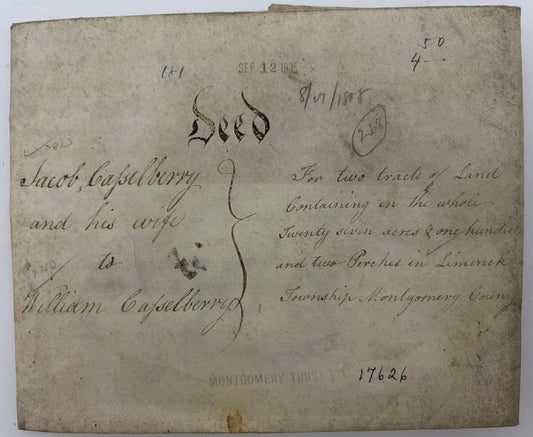 50
4
181 SEP 12 1935
8/27/1808
Deed
268
Jacob Caſselberry
and his wife
to
William Caſselberry
For two tracts of Land
Containing in the whole
Twenty seven acres & one hundred
and two Perches in Limerick
Township Montgomery County
MONTGOMERY TRUST
17626